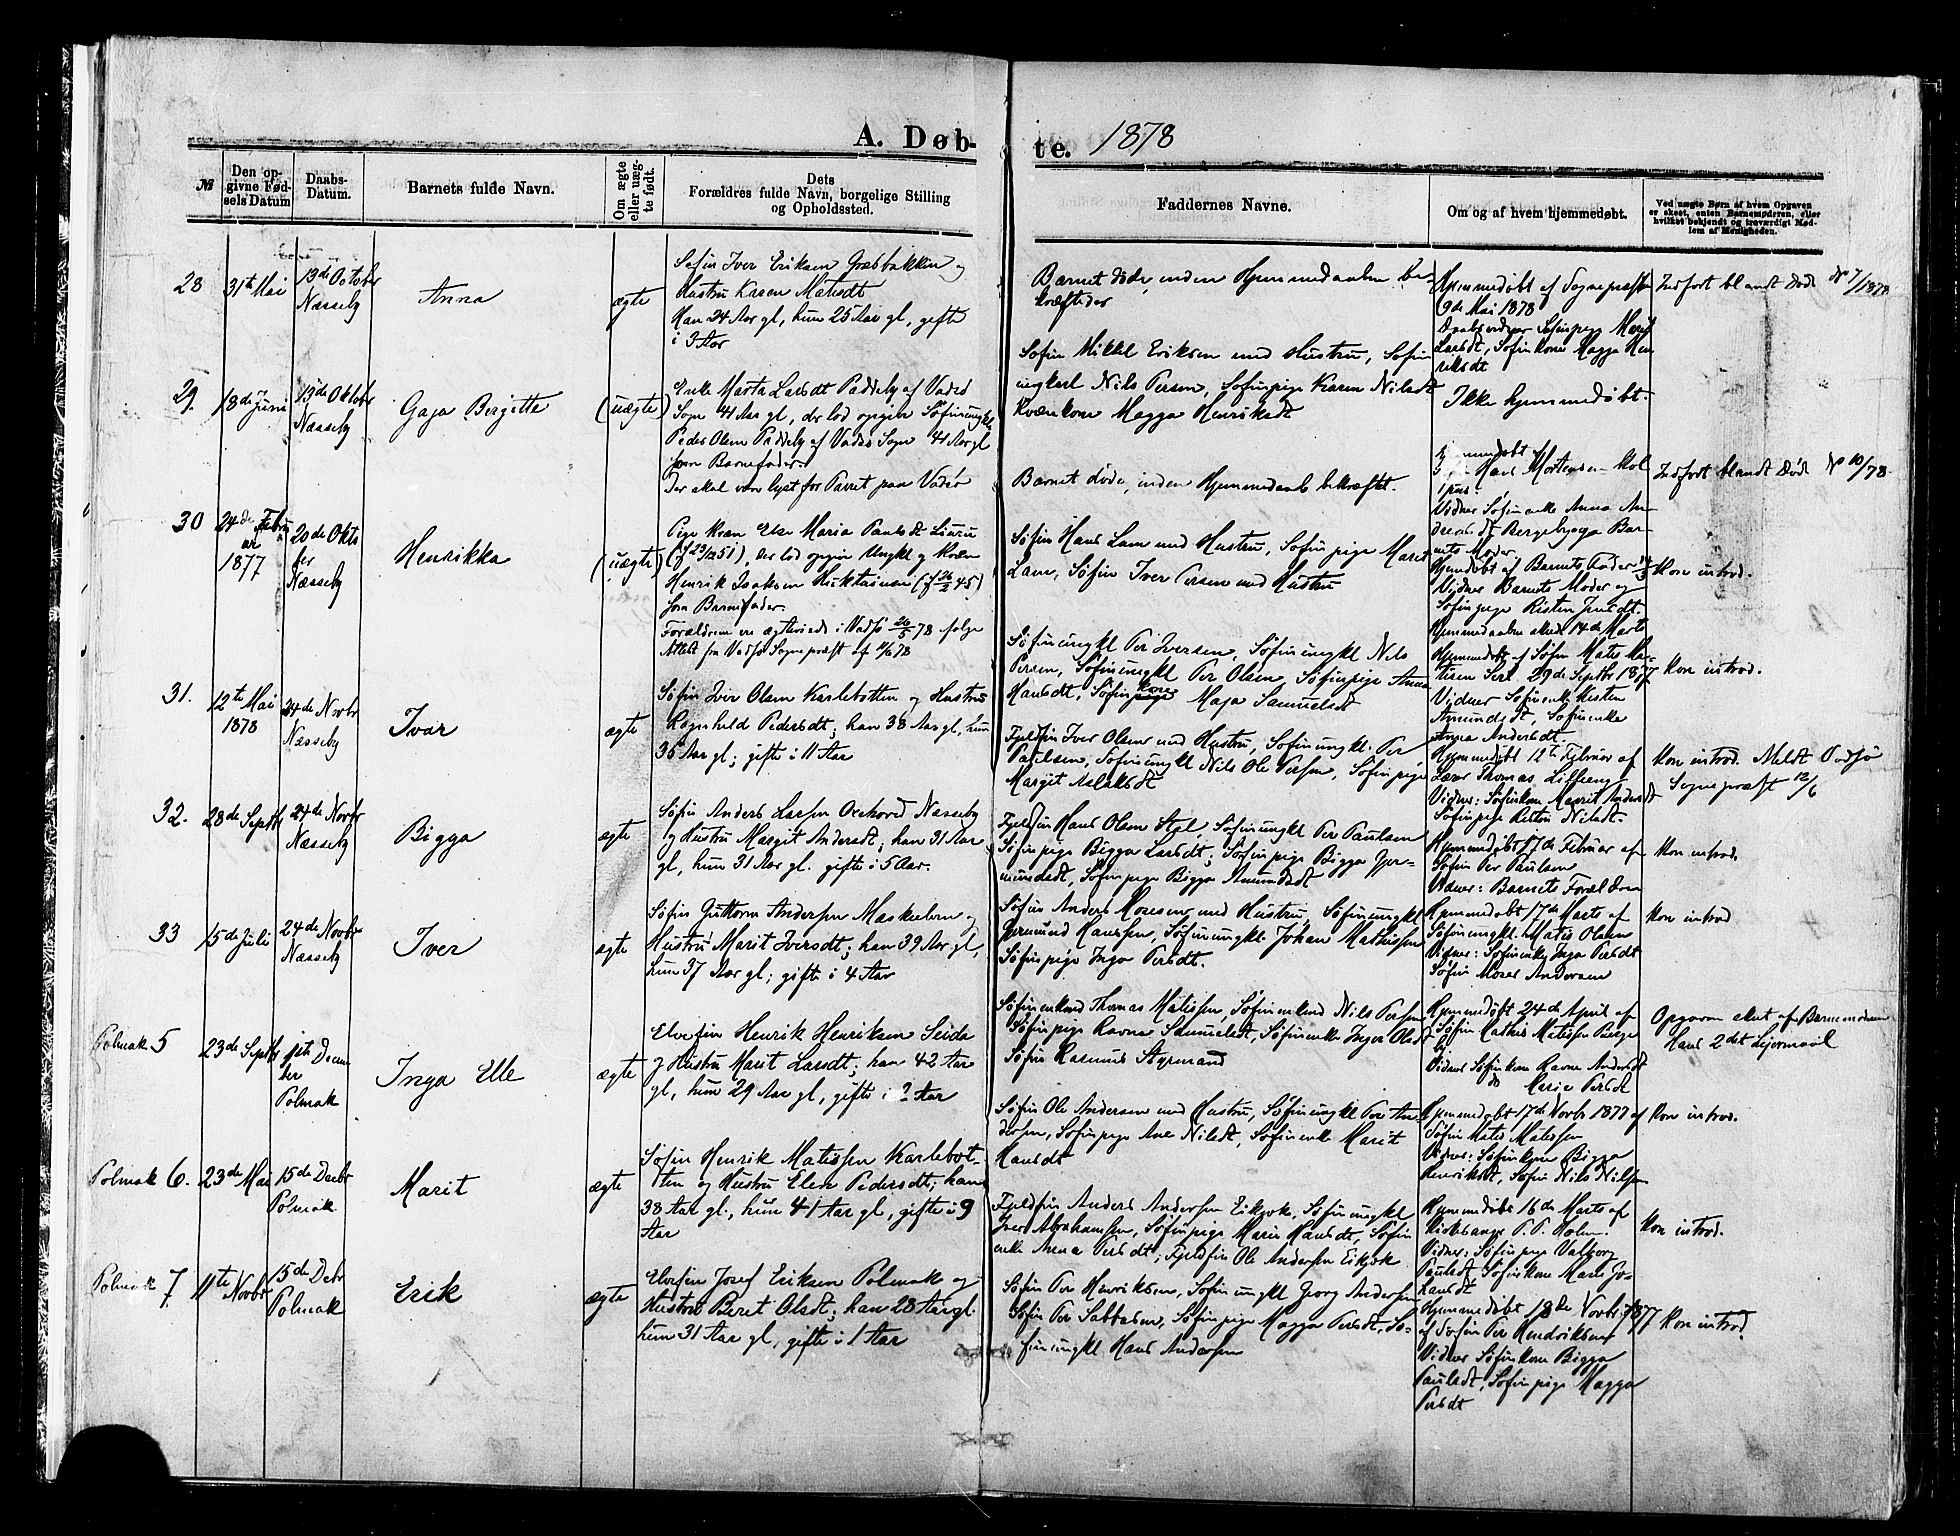 A. Døb-
te. 1878
№
Den op-
givne Fød-
sels Datum
Daabs-
Datum.
Barnets fulde Navn.
Om ægte
eller uæg-
te født.
Dets
Forældres fulde Navn, borgelige Stilling
og Opholdssted.
Faddernes Navne.
Om og af hvem hjemmedøbt.
Ved uægte Børn af hvem Opgaven
er skeet, enten Barnemoderen, eller
hvilket bekjendt og troværdigt Med-
lem af Menigheden.
28
31te Mai
13de October
Næsseby
Anna
ægte
Søfin Iver Eriksen Græsbakken og
Hustru Karen Matsdt
Han 24 Aar gl, hun 25 Aar gl, gifte
i 3 Aar
29.
18de Juni
13de Oktober
Næsseby
Gaja Bergitte
(uægte)
Enke Marta Larsdt Paddeby af Vadsø
Sogn 41 Aar gl, der lod opgive Søfinungkl
Peder Olsen Paddeby af Vadsø Sogn 41 Aar gl
som Barnefader.
Der skal være lyst for Parret paa Vadsø
30
24de Febru
ar
1877
20de Okto
ber
Næsseby
Henrikka
(uægte)
Pige kvæn Else Maria Paulsdt
der lod opgive Ungkl og Kvæn
Henrik Isaksen
som Barnefader.
Forældrene ere ægteviede i Vadsø 26/5 78 følge
Attest fra Vadsø Sognepræst af 11/6 78
31.
12te Mai
1878
24de Novbr
Næsseby
Ivar
ægte
Søfin Iver Olsen Karlebotten og Hustru
Ragnhild Pedersdt; han 38 Aar gl, hun
35 Aar gl; gifte i 11 Aar
32.
28de Septbr
24de Novbr
Næsseby
Bigga
ægte
Søfin Anders Larsen Næsseby
og Hustru Margit Andersdt; han 31 Aar
gl, hun 31 Aar gl. gifte i 5 Aar.
33
15de Juli
24de Novbr
Næsseby
Iver
ægte
Søfin Guttorm Andersen Maskelven og
Hustru Marit Iversdt; han 39 Aar gl,
hun 37 Aar gl; gifte i 4 Aar
Polmak 5
23de Septbr
1ste Decem
ber
Polmak
Inga Elle
ægte
Elvefin Henrik Henriksen Seida
og Hustru Marit Larsdt; han 42 Aar
gl, hun 29 Aar gl, gifte i 2 Aar
Polmak 6.
23de Mai
15de Decbr
Polmak
Marit
ægte
Søfin Henrik Matissen Karlebot-
ten og Hustru Elen Pedersdt; han
38 Aar gl, hun 41 Aar gl, gifte i 9
Aar
Polmak 7
11te Novbr
15de Debr
Polmak
Erik
ægte
Elvefin Josef Eriksen Polmak og
Hustru Beret Olsdt; han 28 Aar gl.
hun 31 Aar gl, gifte i 1 Aar
Barnet døde, inden Hjemmedaaben be-
kræftedes
Søfin Mikkel Eriksen med Hustru, Søfin
ungkarl Nils Persen, Søfinpige Karen Nilsdt
Kvænkone Magga Henriksdt
Barnet døde, inden Hjemmedaab bekræftet.
Søfin Hans Lam med Hustru, Søfinpige Marit
Lam, Søfin Iver Persen med Hustru
Søfinungkl Per Iversen, Søfinungkl Nils
Persen, Søfinungkl Per Olsen, Søfinpige Anna
Hansdt, Søfinkone Maja Samuelsdt
Fjeldfin Iver Olsen med Hustru, Søfinungkl. Per
Paulsen, Søfinungkl Nils Ole Persen, Søfinpige
Margit Aslaksdt
Fjeldfin Hans Olsen Søfinungkl Per Paulsen
Søfinpige Bigga Larsdt; Søfinpige Bigga Gjer-
mundsdt, Søfinpige Bigga Amundsdt
Søfin Anders Mosesen med Hustru, Søfinungkl
Gjermund Hansen, Søfinungkl. Johan Mathissen
Søfinpige Inga Persdt.
Søfinenkmd Thomas Matissen, Søfinenkmd Nils Persen
Søfinpige Ravna Samuelsdt, Søfinenke Inger Olsdt
Søfin Rasmus Styrmand
Søfin Ole Andersen med Hustru, Søfinungkl Per An-
dersen, Søfinpige Ane Nilsdt, Søfinenke Marit
Hansdt
Fjeldfin Anders Andersen Eikjok, Søfinungkl
Iver Abrahamsen, Søfinpige Marie Hansdt, Søfin
enke Anna Persdt, Fjeldfin Ole Andersen Eikjok
Søfin Per Henriksen, Søfinungkl Georg Andersen
Søfin Per Sabbasen, Søfinpige Magga Persdt, Sø-
finungkl Hans Andersen
Hjemmedøbt af Sognepræsten
9de Mai 1878
Daabsvidner Søfinpige Marit
Larsdt, Søfinkone Magga Hen
riksdt
Ikke hjemmedøbt.
Hjemmedøbt af
Hans Mortensen
Vidner Søfinenke Anna An-
dreasdt Bergebygga Bar-
nets Moder
Hjemdøbt af Barnets Fader
Vidner Barnets Moder og
Søfinpige Risten
Hjemmedaaben skede 14de Marts
Hjemmedøbt af Søfin Mats
29de Septbr 1877
Vidner Søfinenke Kirsten
Amundsdt, Søfinenke
Anna Andersdt.
Hjemmedøbt 12te Februar af
Lærer Thomas Lilleeng
Vidner: Søfinkone Marit Andersdt
Søfinpige Risten Nilsdt.
Hjemmedøbt 17de Februar af
Søfin Per Paulsen
Vidner: Barnets Forældre
Hjemmedøbt 17de Marts af
Søfinungkl. Matis Olsen
Vidner: Søfinenke Inga Persdt
Søfin Moses Andersen
Hjemmedøbt 24de April af
Søfin Mathis Matissen Berge
by
Vidner Søfinkone Ravna Andersdt
do Marie Persdt
Hjemmedøbt 17de Novbr 1877 af
Søfin Matis Matissen
Vidner: Søfinkone Bigga
Henriksdt, Søfin Nils Nilsen
Hjemmedøbt 16de Marts af
Kirkesanger P. P. Holm.
Vidner: Søfinpige Valborg
Paulsdt, Søfinkone Marit
Larsdt
Hjemmedøbt 18de Novbr 1877
af Søfin Per Hendriksen
Vidner Søfinkone Bigga
Paulsdt, Søfinpige Magga
Persdt
Indført blandt Døde No 7/1878
Indført blandt Døde No 10/78
Kon introd.
Kon introd.
Kon introd. Meldt Vadsø
Sognepræst 12/6
Kon introd.
Kon introd
Opgaven skeet af Barnemoderen
Hans 2det Leiermaal
Kon introd.
Kon introd.
Kon introd.